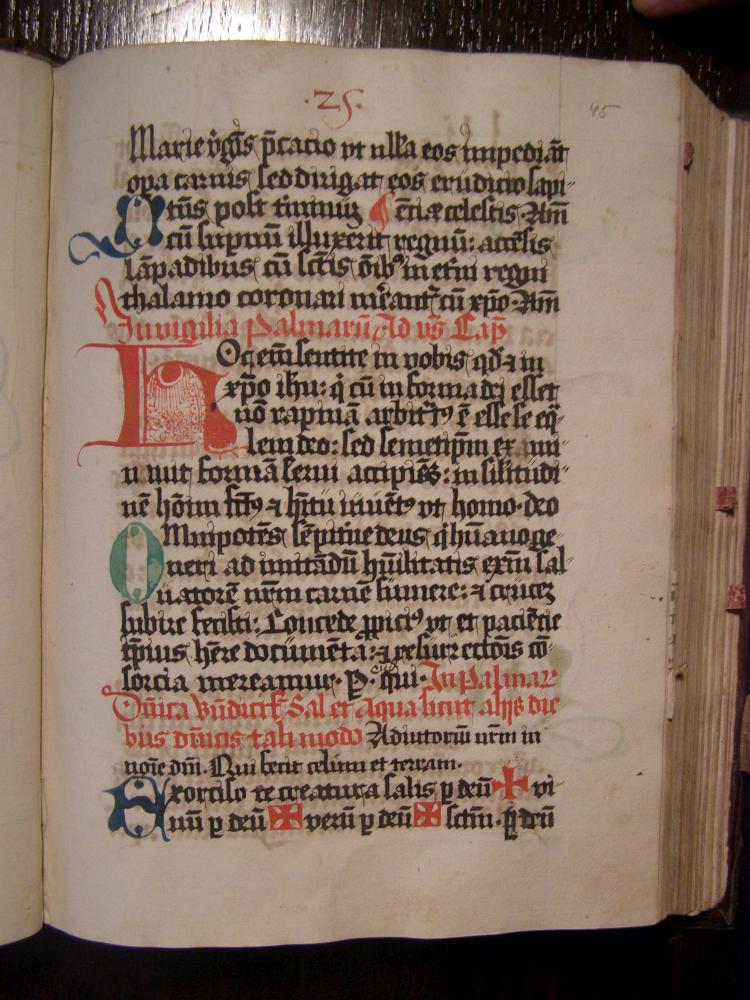 ·25·
45
Marie v̾gīs p̄catio vt nulla eos impediāt
opa carnis sed dirigat eos eruditio sapi-
tūs post ¶ ētiæ celestis Am̄
cū supnū illuxerit regnū: accēsis
lāpadibus cū sctīs oīb⁹ in et̄ni regni
thalamo coronari mereant᷑ cū xp̄o Am̄
In vigilia Palmarū Ad vs̄ Cap̄
Hoc em̄ sentite in vobis qd̄ ⁊ in
xp̄o ihu: q̇ cū in forma dei esset
nō rapinā arbit̾t⁹ ē esse se eq̄-
lem deo: sed semetip̄m exinani-
uit formā serui accipiēs: in silitudi-
nē hōim fct̄⁹ ⁊ hītu inuēt⁹ vt homo· deo
Omnipotēs sēpit̾ne deus q̇ hūano ge-
neri ad imitādū hūilitatis exm̄ sal-
uatorē nrm̄ carnē sumere: ⁊ crucē
subire fecisti: Concede ppici⁹ vt et paciētie
ip̄ius hēre documēta: ⁊ resurrectōis cō-
sorcia mereamur· P· eūdē In Palmar᷑
Dn̄ica bn̄dicit᷑ Sal et Aqua sicut alijs die
bus dn̄icis tali modo Adiutoriū nrm̄ in
noīe dnī· Qui fecit celum et terram·
Exorciso te creatura salis p deū ✠ vi-
uū p deū ✠ verū p deū ✠ sctm̄· p deū